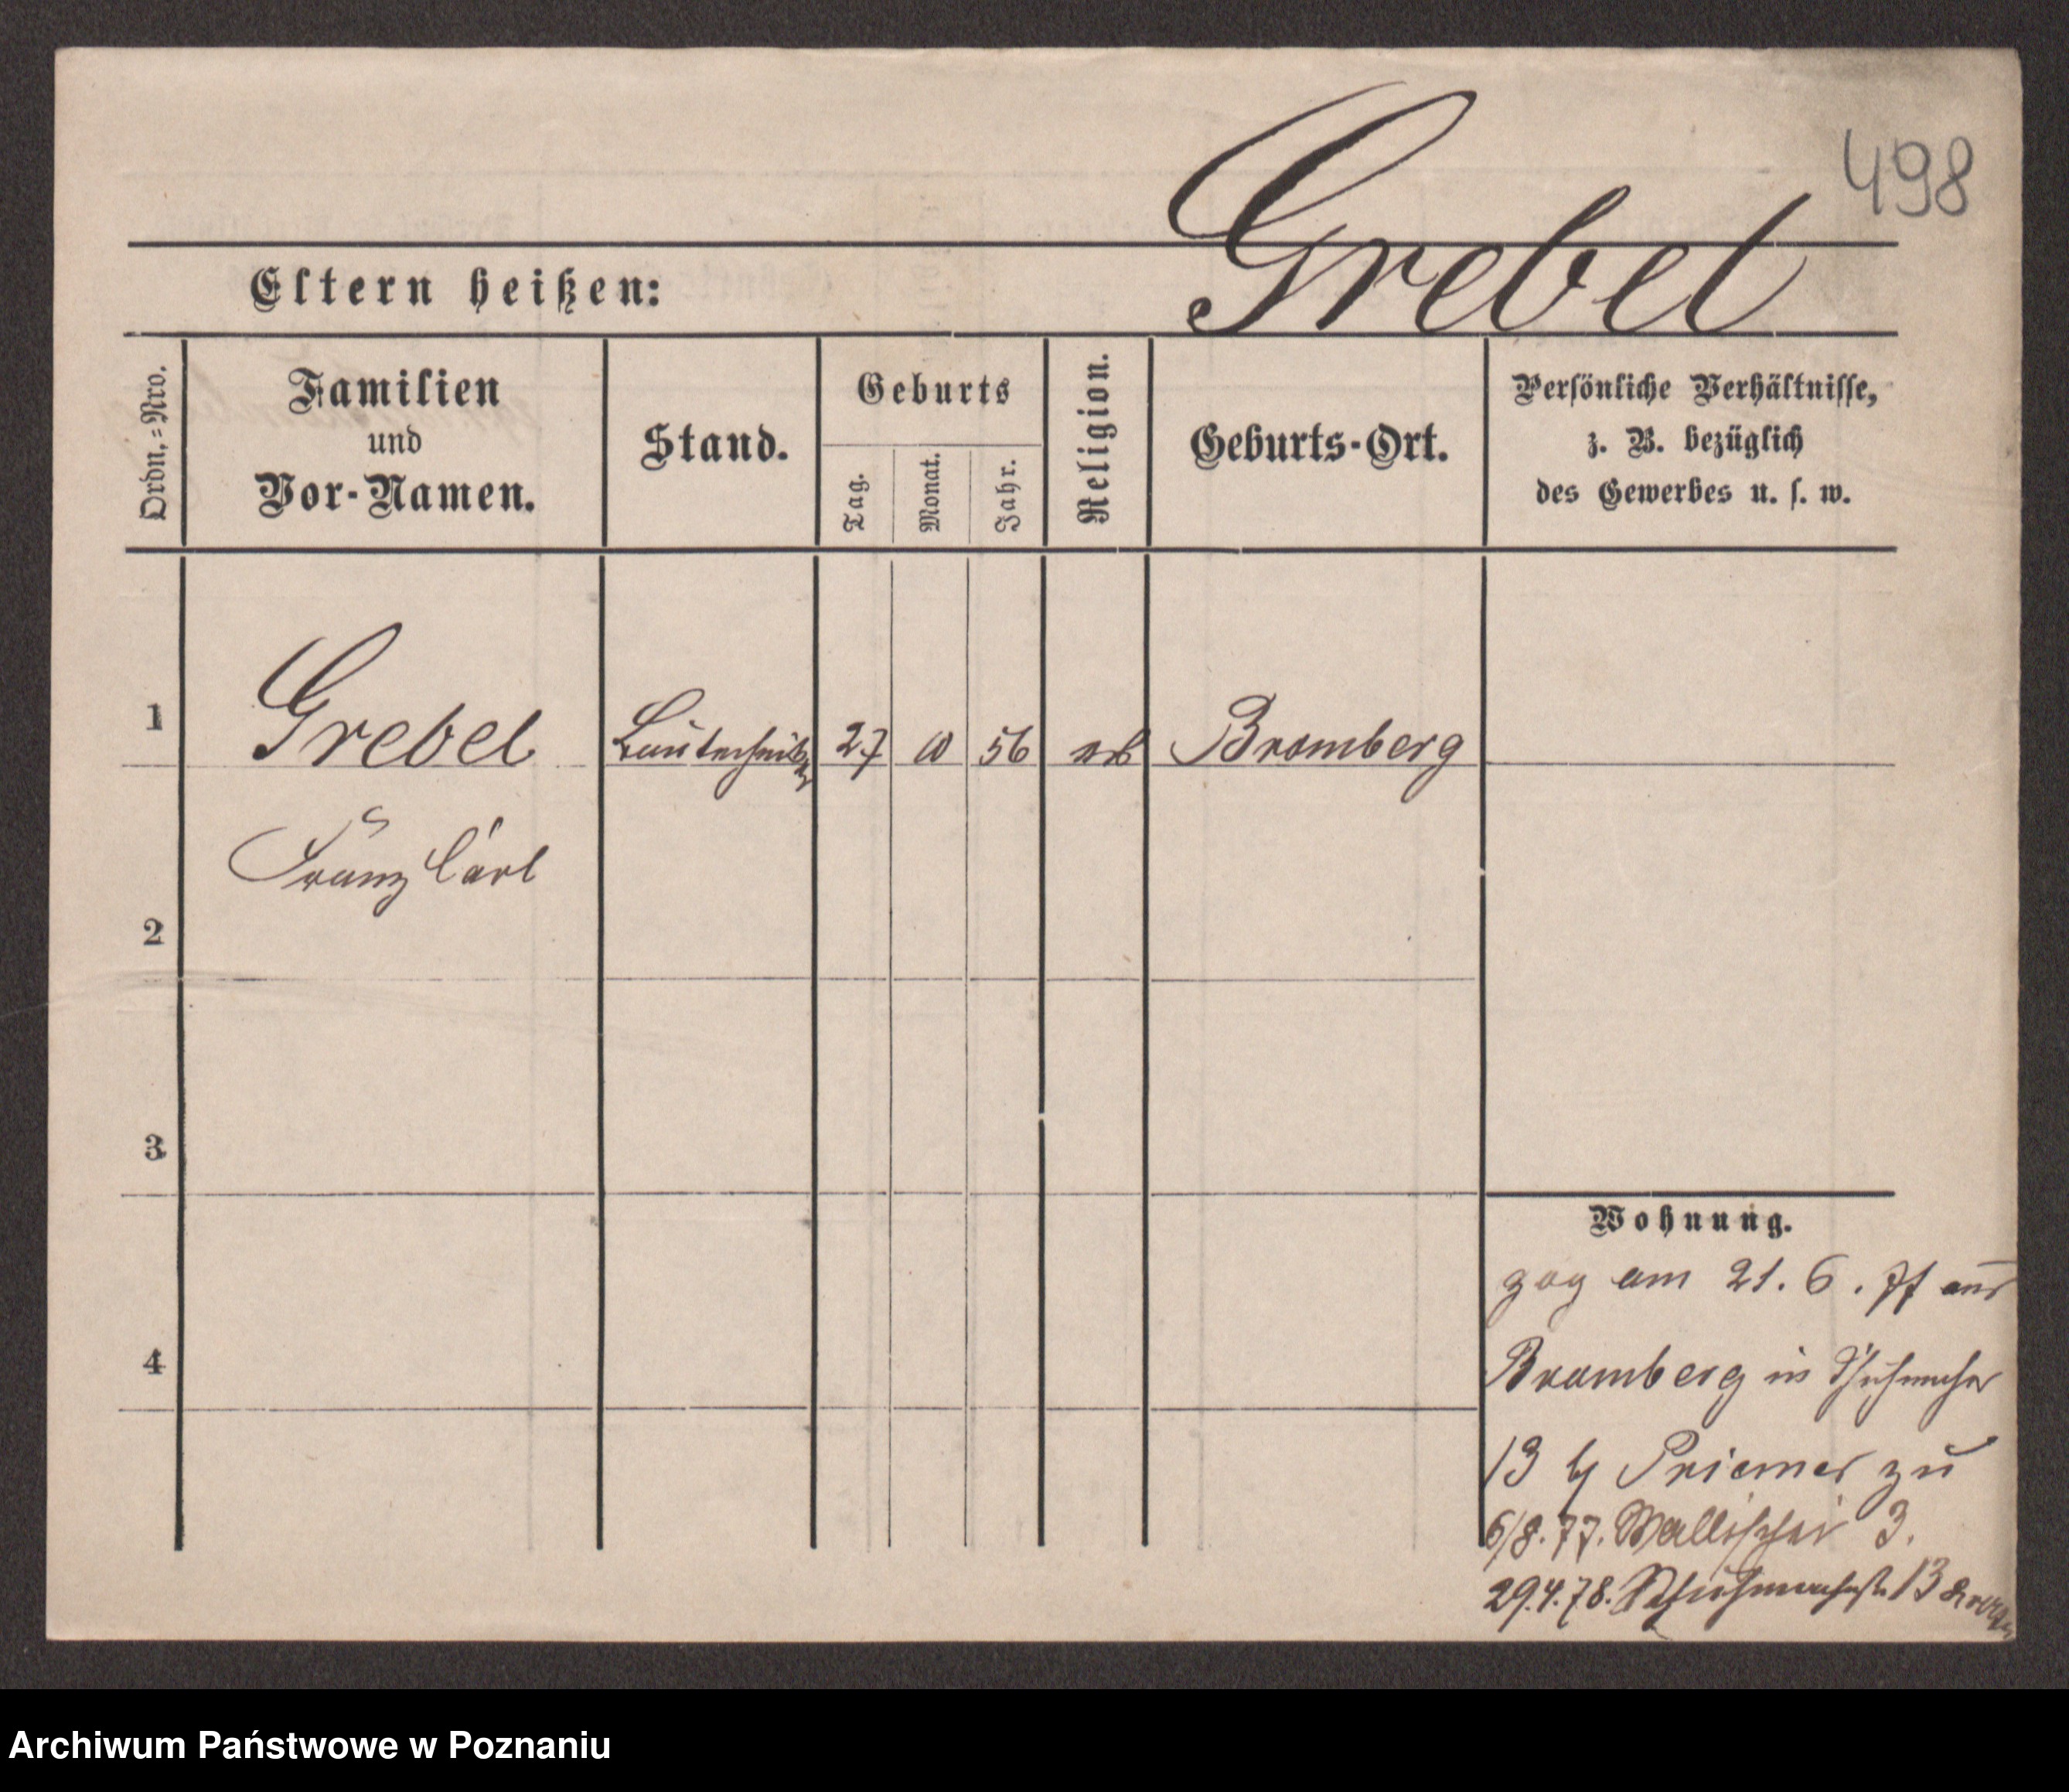 498
Grebel
Eltern heißen:
Ordn.=Nro.
Familien
und
Vor-Namen.
Stand.
Geburts
Tag.
Monat.
Jahr.
Religion.
Geburts-Ort.
Persönliche Verhältnisse,
z. B. bezüglich
des Gewerbes u. s. w.
1 Grebel 27 10 56 Bromberg
Franz Carl
2
3
4
Wohnung.
zog am 21. 6. 77 aus
Bromberg in Schuhmacher
13 zu
6/8. 77. Wallischei 3.
29.4.78. Schuhmacherstr. 13
Archiwum Państwowe w Poznaniu